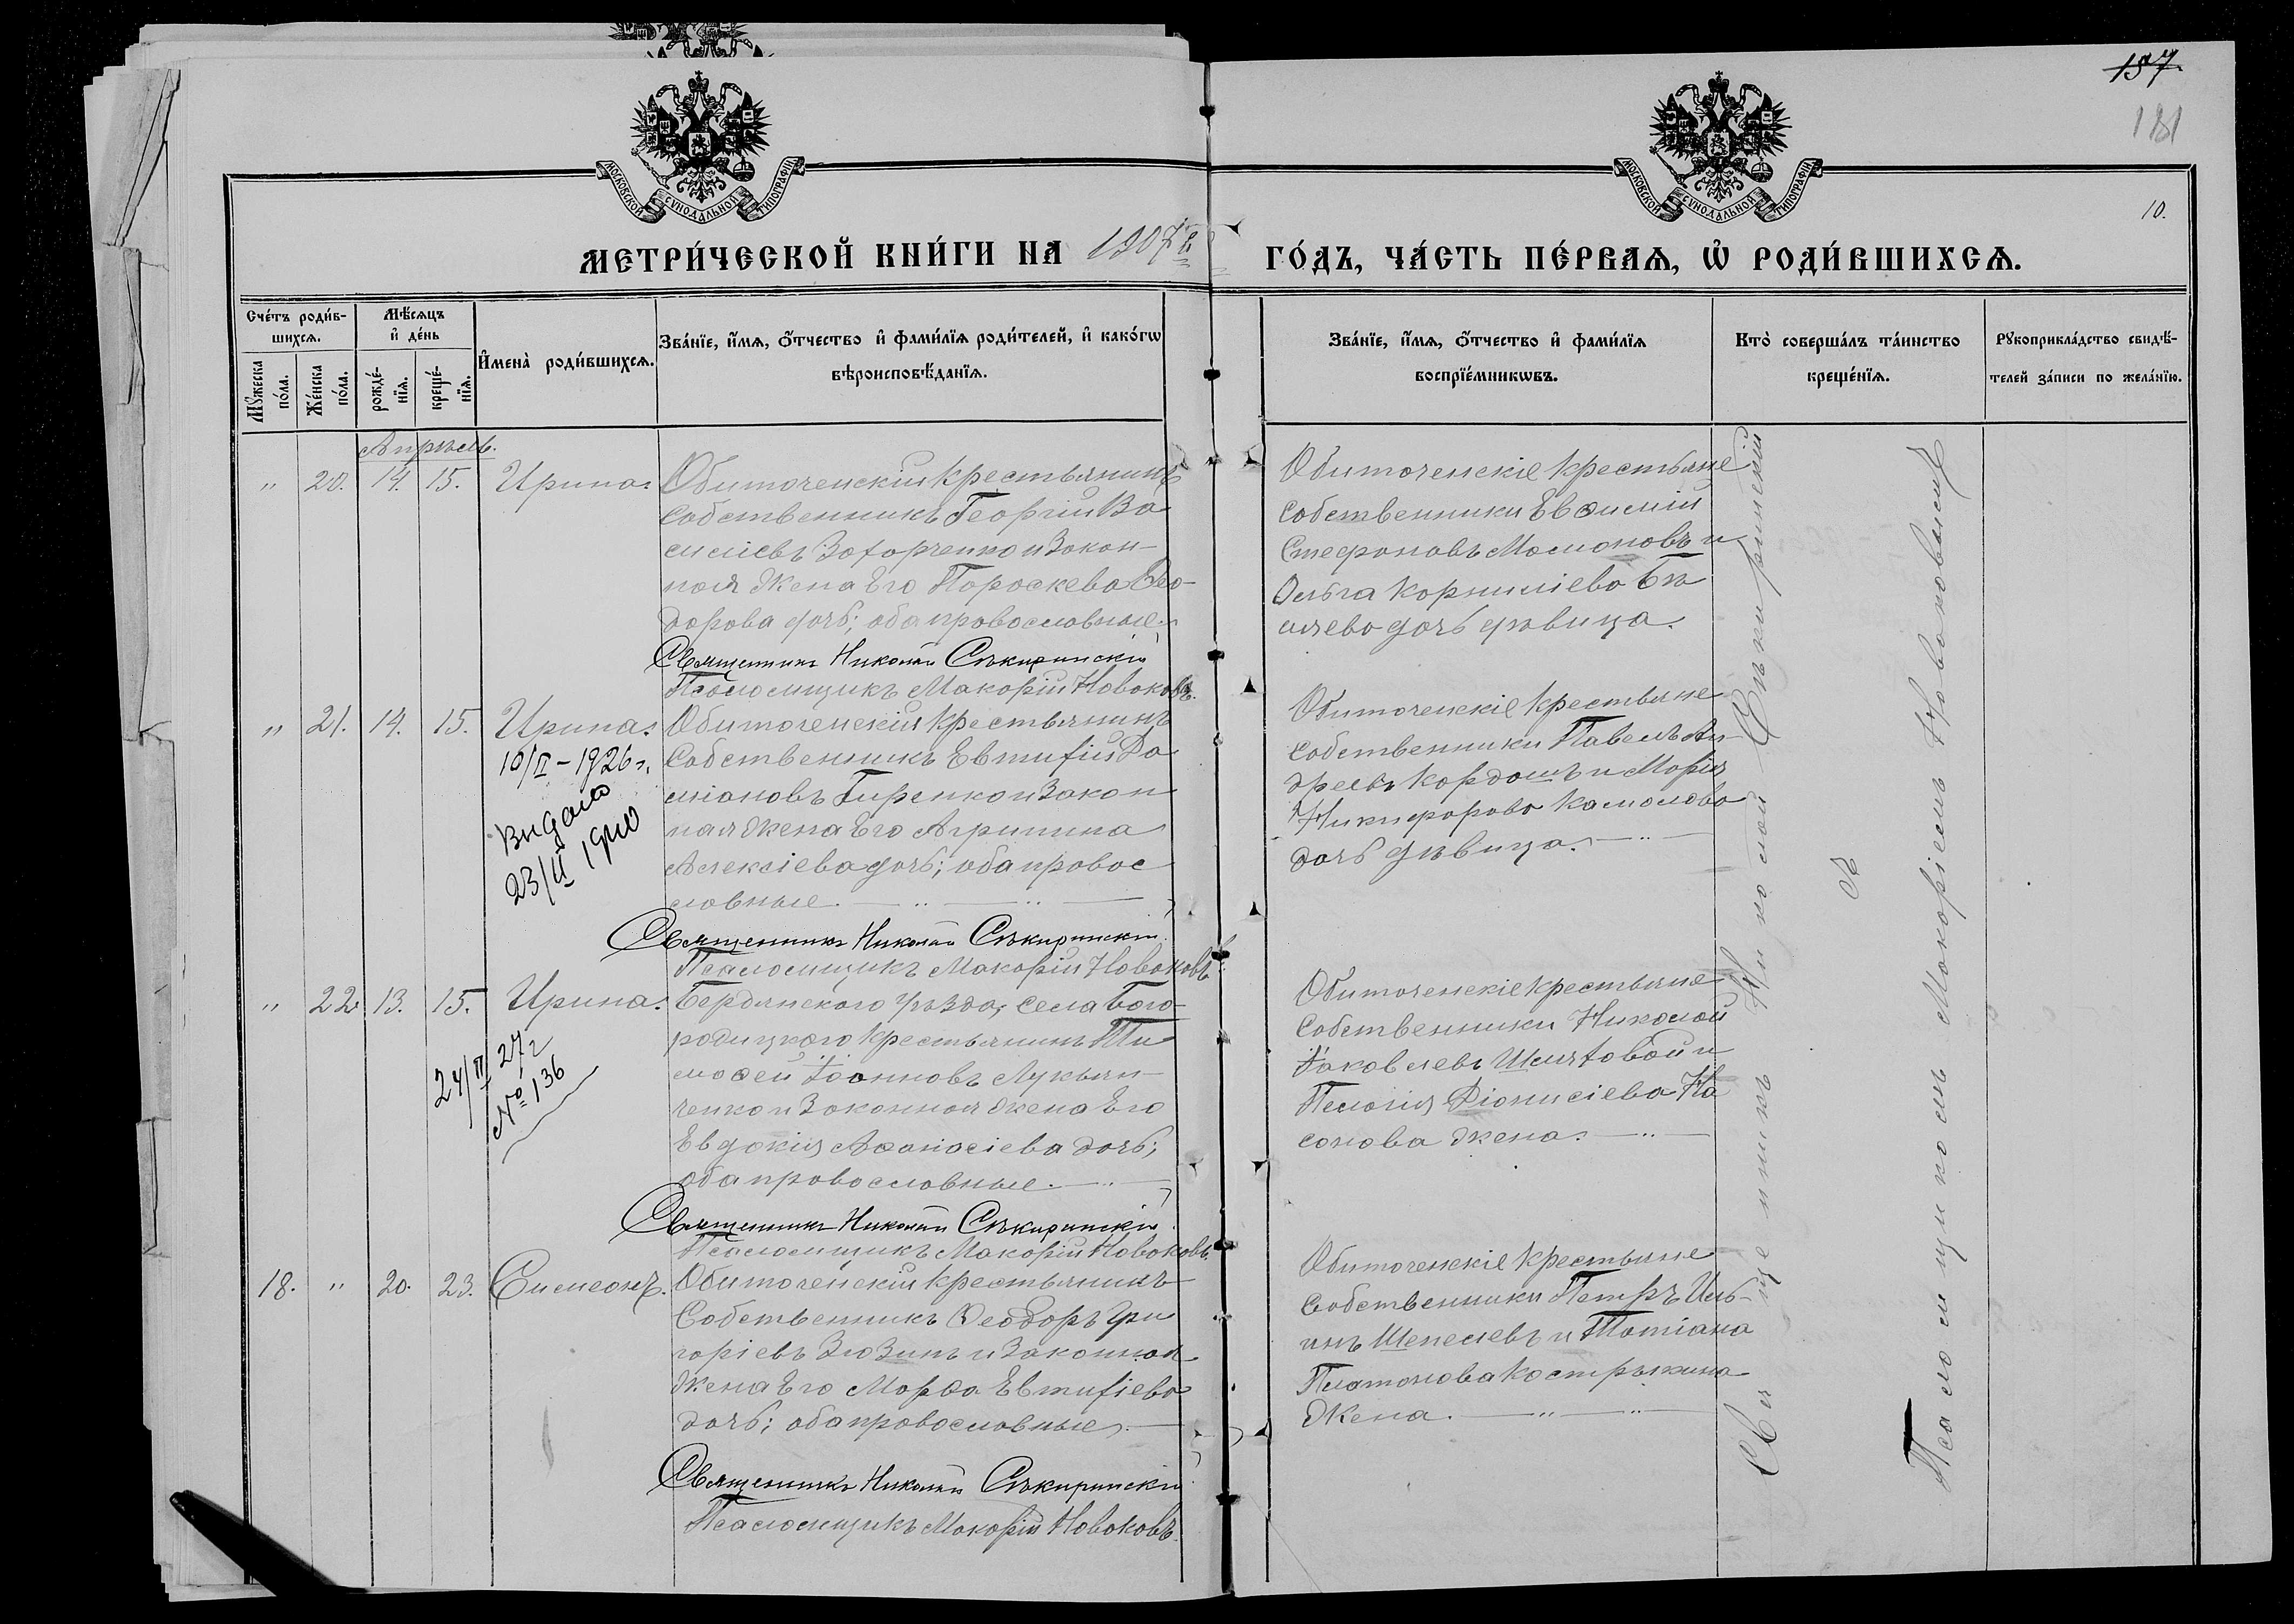 157.
181
10.
МОСКОВСКОЙ СѴНОДАЛЬНОЙ ТИПОГРАФІИ
МОСКОВСКОЙ СѴНОДАЛЬНОЙ ТИПОГРАФІИ
МЕТРИ́ЧЕСКОЙ КНИ́ГИ НА 1907й ГО́ДЪ, ЧА́СТЬ ПЕ́РВАѦ, Ѡ҆ РОДИ́ВШИХСѦ.
Сче́тъ роди́в-
шихсѧ.
Мꙋжеска
по́ла.
Же́нска
по́ла.
Мѣ́сѧцъ
и҆ де́нь
рожде́-
нїѧ.
креще́-
нїѧ.
И҆мена̀ роди́вшихсѧ.
Зва́нїе, и҆́мѧ, ѻ҆́тчество и҆ фами́лїѧ роди́телей, и҆ како́гѡ
вѣроисповѣ́данїѧ.
Зва́нїе, и҆́мѧ, ѻ҆́тчество и҆ фами́лїѧ
воспрїе́мникѡвъ.
Кто̀ соверша́лъ та́инство
креще́нїѧ.
Рꙋкоприкла́дство свидѣ́-
телей за́писи по жела́нїю.
Апрѣль.
" 20. 14. 15. Ирина.
Обиточенскій крестьянинъ
собственникъ Георгій Ва
силіевъ Захарченко и закон-
ная жена его Параскева Ѳео-
дорова дочь; оба православные.
Священникъ Николай Сѣкиринскій
Псаломщикъ Макарій Новаковъ.
Обиточенскіе крестьяне
собственники Евѳимій
Стефановъ Мамоновъ и
Ольга Корниліева Бѣ
ляева дочь дѣвица.
" 21. 14. 15. Ирина.
10/II – 1926 г.
Видано
23/II 1940
Обиточенскій крестьянинъ
собственникъ Евтихій Да
міановъ Гиренко и закон
ная жена его Агриппина
Алексіева дочь; оба правос
лавные.
Священникъ Николай Сѣкиринскій
Псаломщикъ Макарій Новаковъ
Обиточенскіе крестьяне
собственники Павелъ Ан-
дреевъ Кордашъ и Марія
Никифорова
дочь дѣвица.
" 22. 13. 15. Ирина.
24/II 27 г
№ 136
Бердянскаго уѣзда, села Бого-
родицкаго крестьянинъ Ти
моѳей Іоанновъ Лукьян-
ченко и законная жена его
Евдокія Аѳанасіева дочь;
оба православные.
Священникъ Николай Сѣкиринскій
Псаломщикъ Макарій Новаковъ.
Обиточенскіе крестьяне
собственники Николай
Іаковлевъ Шляховой и
Пелагія Діонисіева На
сонова жена.
18. " 20. 23. Симеонъ.
Обиточенскій крестьянинъ
собственникъ Ѳеодоръ Гри
горіевъ Зюзинъ и законная
жена его Марѳа Евтихіева
дочь; оба православные.
Священникъ Николай Сѣкиринскій
Псаломщикъ Макарій Новаковъ.
Обиточенскіе крестьяне
собственники Петръ Иль-
инъ Шепелевъ и Татіана
Платонова Кострыкина
жена.
Священникъ Николай Сѣкиринскій
съ
Псаломщикомъ Макаріемъ Новаковымъ